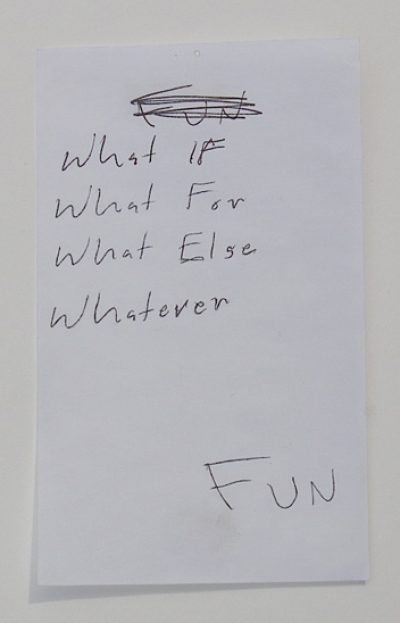 FUN
What IF
What For
What Else
Whatever
FUN